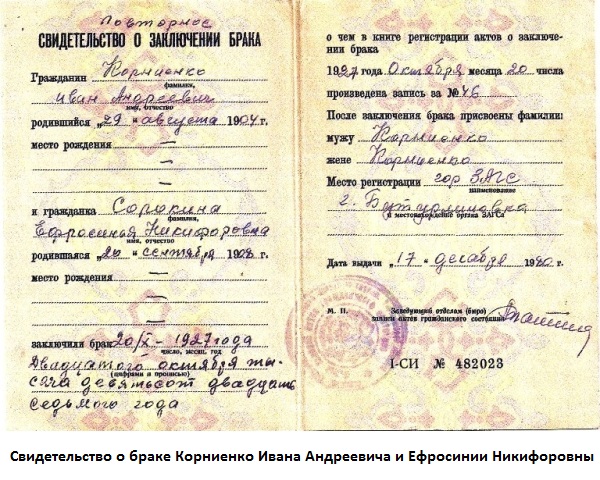 Повторное
СВИДЕТЕЛЬСТВО О ЗАКЛЮЧЕНИИ БРАКА
Гражданин Корниенко
фамилия,
Иван Андреевич
имя, отчество
родившийся „29“ августа 1904 г.
место рождения —
—
—
и гражданка Сорокина
фамилия,
Ефросиния Никифоровна
имя, отчество
родившаяся „20“ сентября 1908 г.
место рождения —
—
—
заключили брак 20/X – 1927 года
число, месяц, год
Двадцатого октября ты-
(цифрами и прописью)
сяча девятьсот двадцать
седьмого года
о чем в книге регистрации актов о заключе-
нии брака
1927 года Октября месяца 20 числа
произведена запись за № 46
После заключения брака присвоены фамилии:
мужу Корниенко
жене Корниенко
Место регистрации гор ЗАГС
наименование
г. Бутурлиновка
и местонахождение органа ЗАГСа
Дата выдачи „17“ декабря 1980 г.
М. П. Заведующий отделом (бюро)
записи актов гражданского состояния
I-СИ № 482023
Свидетельство о браке Корниенко Ивана Андреевича и Ефросинии Никифоровны